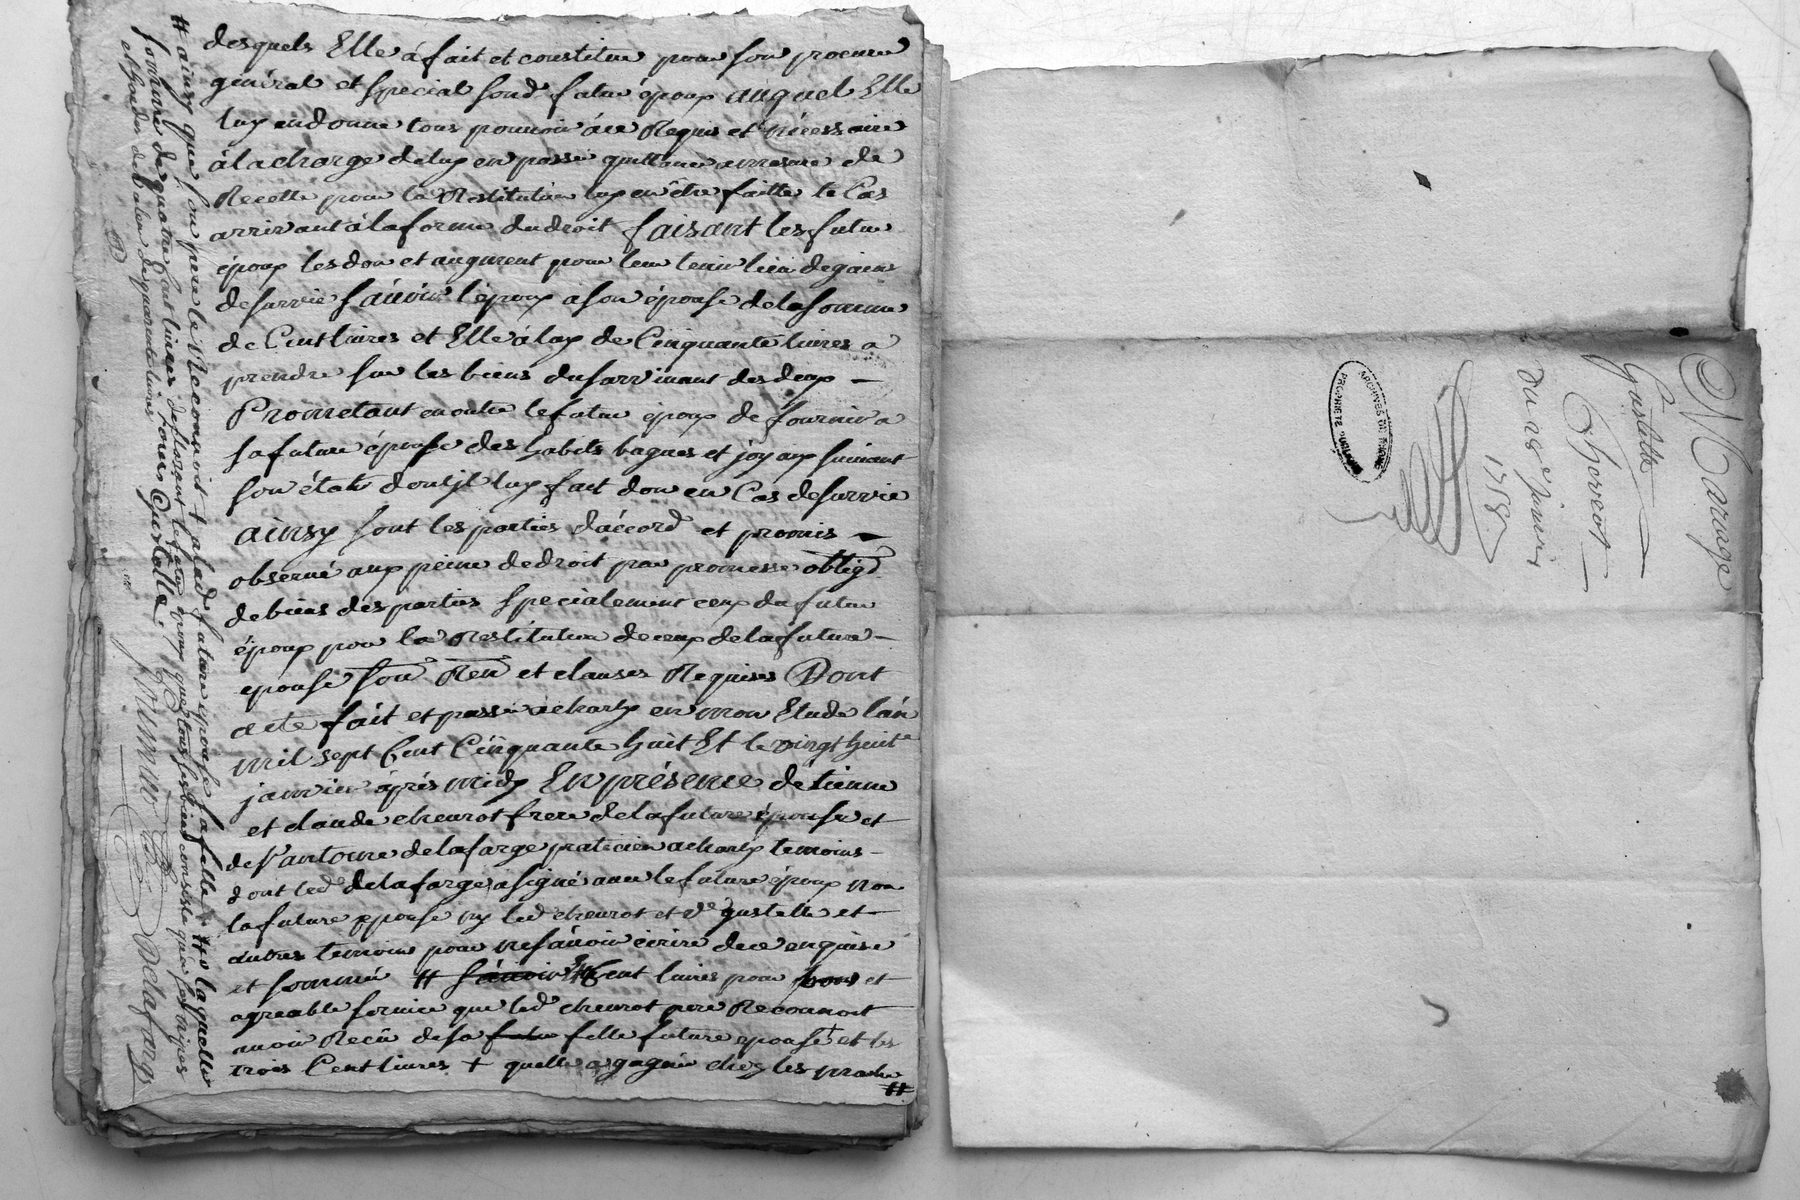 desquels Elle á fait et constitue pour son procureur
général et special sond. futur époux auquel Elle
luy en donne tous pouvoir á ce Requis et nécessaire
á la charge de luy en passé quittance a mesure de
Recette pour la Restitution luy en être faitte le Cas
arrivant á la forme du droit faisant les futur
époux les don et augment pour leur tenir lieu de gain
de survie sçavoir l'époux á son épouse de la somme
de Cent livres et Elle á luy de Cinquante livres a
prendre sur les biens du survivant des deux —
Prometant en outre le futur époux de fournir a
sa future épouse des habits bagues et joyaux suivant
son état dont jl luy fait don en Cas de survie
ainsy sont les parties d'accord et promis —
observé aux peine de droit par promesse oblig.
de biens des parties specialement ceux du futur
époux pour la Restitution de ceux de la future —
epouse sou Ren et clauses Requises Dont
acte fait et passé á charly en mon Etude l'an
mil sept Cent Cinquante huit Et le vingt huit
janvier áprés midy En présence de tienne
et claude chevrot frere de la future épouse et
de Sr antoine delafarge praticien a charly temoins —
dont led. delafarge á signé avec le futur époux non
la future epouse ny led chevrot et de gustelle et —
autres temoins pour ne sçavoir écrire de ce enquise
et sommé # sçavoir Cent livres pour bons et
agreable service que led. chevrot pere Reconnoit
avoir Recû de sa futu fille future epouse et les
trois Cent livres + quelle a gagné chez les
#
# ainsy que son pere le Reconnoit + a lad. future epouse sa fille # laquelle
somme de quatre Cent livres
et
Gustelle
Delafarge
Mariage
Gustelle
Chevrot
Du 28e Janvier
1758
ARCHIVES DU RHONE
PROPRIETE PUBLIQUE